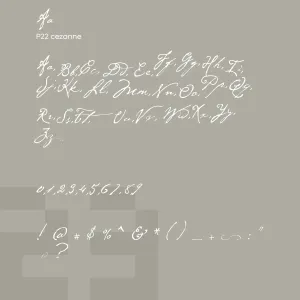 Aa
P22 cezanne
Aa, Bb, Cc, Dd, Ee, Ff, Gg, Hh, Ii,
Jj, Kk, Ll, Mm, Nn, Oo, Pp, Qq,
Rr, Ss, Tt, Uu, Vv, Ww, Xx, Yy,
Zz
0,1,2,3,4,5,6,7,8,9
! @ * $ % ^ & * ( ) _ +
?